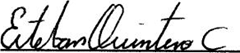 Esteban Quintero C